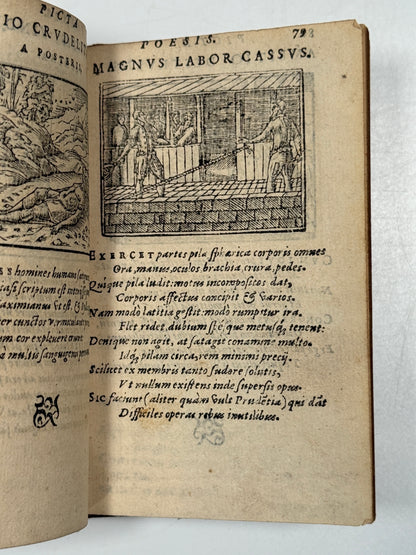 PICTA
IO CRVDELI
A POSTERI
homines humani
scriptum est
aximianus ut est.
er cunctos
cor explevere
a multis
POESIS. 79
MAGNVS LABOR CASSVS.
EXERCET partes pila sphærica corporis omnes
Ora, manus, oculos, brachia, crura, pedes.
Quique pila ludit: motus incompositos dat,
Corporis affectus concipit & varios.
Nam modò lætitia gestit: modò rumpitur ira.
Flet ridet, dubium stḡ què metusq́; tenent:
Denique non agit, at satagit conamine multo.
Idq́; pilam circa, rem minimi precij.
Scilicet ex membris tanto sudore solutis,
Vt nullum existens inde supersit opus.
SIC faciunt (aliter quàm vult Prudẽtia) qui dãt
Difficiles operas rebus inutilibus.